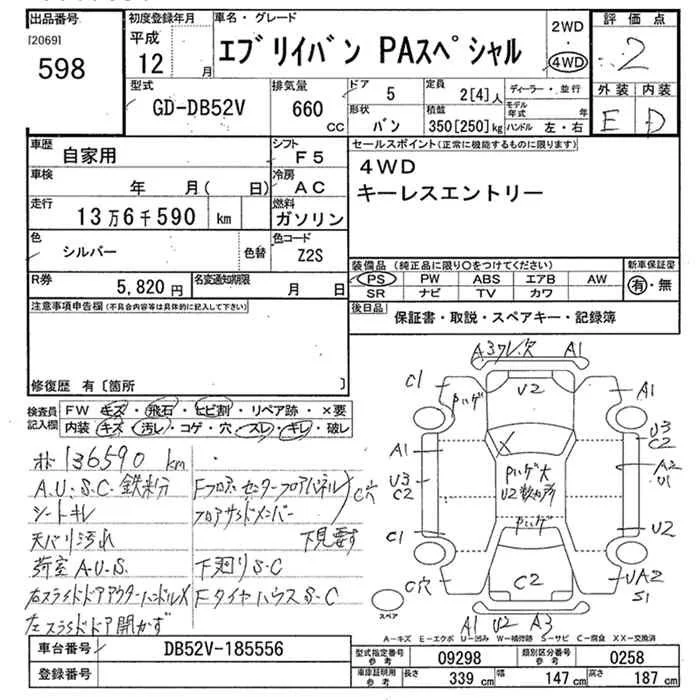 出品番号
[2069]
598
初度登録年月
平成
12 月
車名・グレード
エブリイバン PAスペシャル
2WD
・
4WD
評価点
2
外装 内装
E D
型式
GD-DB52V
排気量
660 CC
ドア
5
形状
バン
定員
2[4]人
積載
350[250]kg
ディーラー・並行
モデル年式 年
ハンドル 左・右
車歴
自家用
シフト
F5
車検
年 月( 日)
冷房
AC
走行
13万6千590 km
燃料
ガソリン
色
シルバー
色替
色コード
Z2S
R券
5,820円
名変通知期限
月 日
セールスポイント(正常に機能するものに限ります)
4WD
キーレスエントリー
装備品 (純正品に限り○をつけてください)
PS PW ABS エアB AW
SR ナビ TV カワ
新車保証型
有・無
後日品
保証書・取説・スペアキー・記録簿
注意事項申告欄(不具合内容等は具体的に記入して下さい)
修復歴 有〔箇所 〕
検査員記入欄
FW キズ・飛石・ヒビ割・リペア跡・×要
内装 キズ・汚レ・コゲ・穴・スレ・キレ・破レ
136590 km
A.U.S.C.鉄粉
シートキレ
天バリ汚れ
荷室A.U.S.
右スライドドアアウターハンドルX
左スライドドア開かず
Fフロア、センターフロアパネル
C穴
フロアサイドメンバー
下見要す
下廻りS.C
FタイヤハウスS.C
A3ワレ欠 A1
C1
U2
A1
A1
U3
C2
U3
C2
A2
U1
C1
U2
C穴
UA2
S1
C2
A1 U2 A3
スペア
A-キズ E-エクボ U-凹み W-補修跡 S-サビ C-腐食 XX-交換済
車台番号
DB52V-185556
登録番号
型式指定番号
参考
09298
類別区分番号
参考
0258
車庫証明用
参考
長さ
339 cm
幅
147 cm
高さ
187 cm